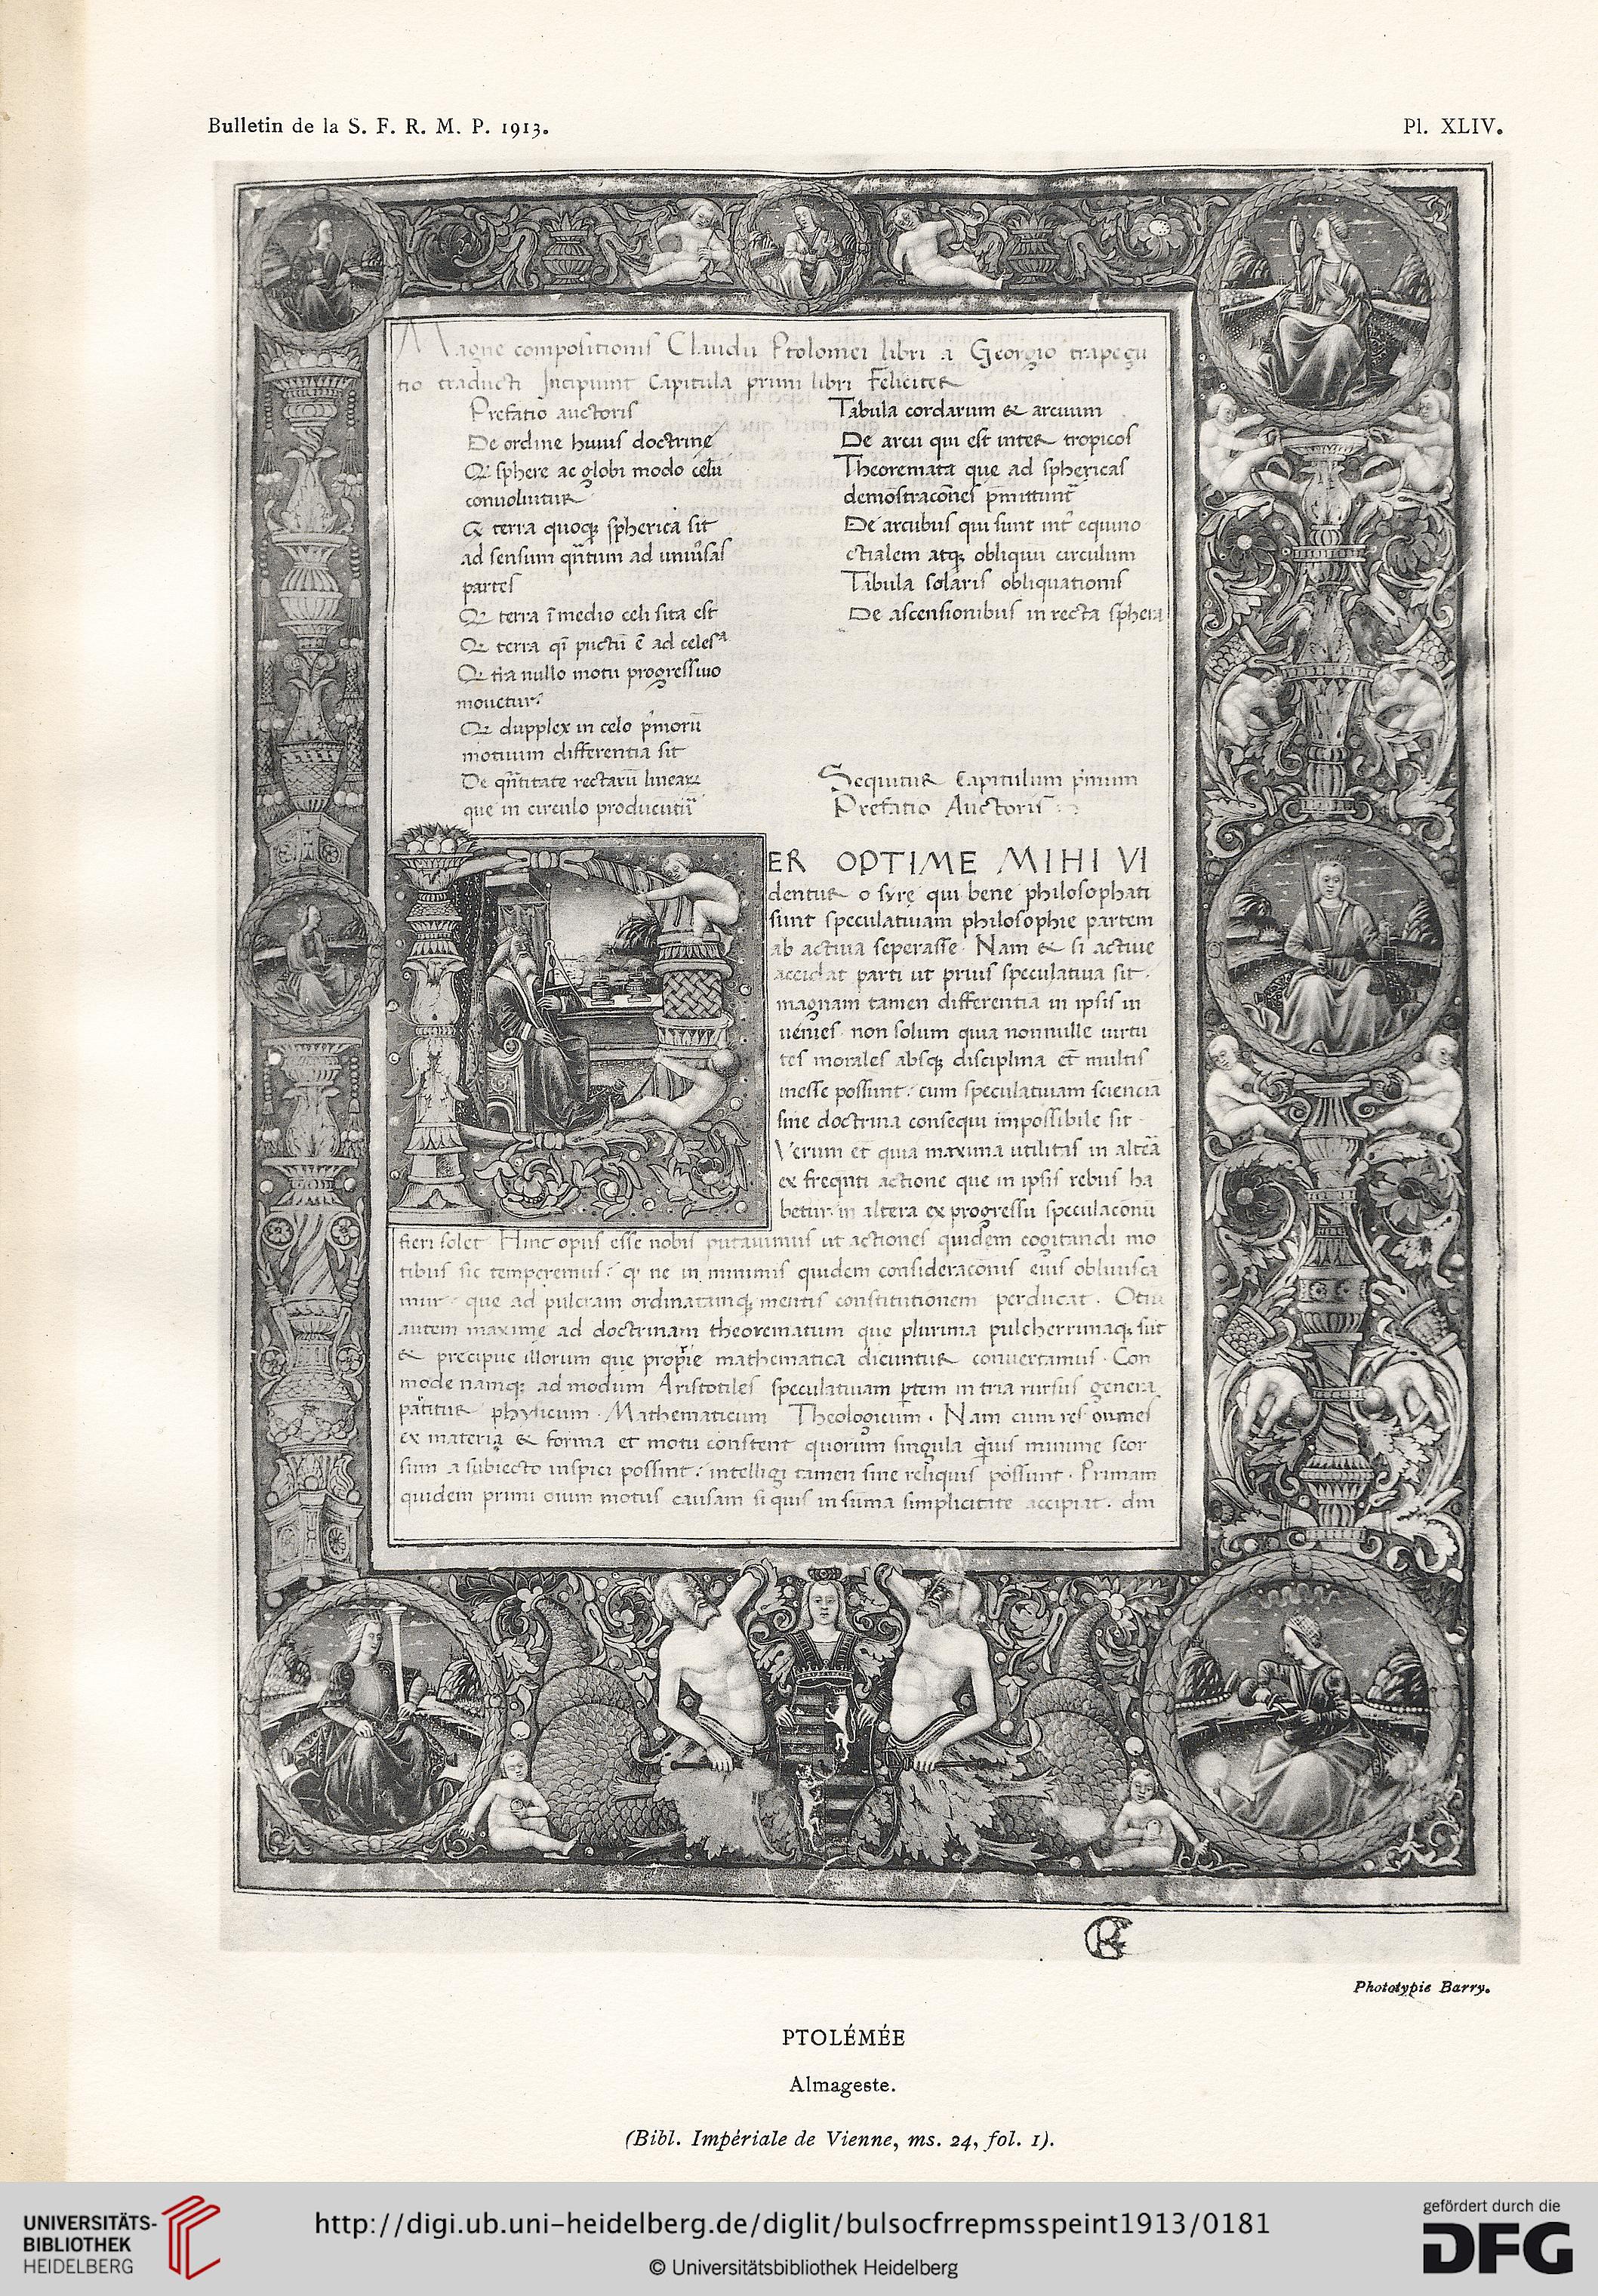 Bulletin de la S. F. R. M. P. 1913.
Pl. XLIV.
Magne compositionis Claudii Ptolomei libri a Georgio trapezu
tio traducti Incipiunt Capitula primi libri Feliciter
Prefatio auctoris
De ordine huius doctrine
Q sphere ac globi modo celu
conuoluitur
Q terra quoq; spherica sit
ad sensum qñtum ad uniu̓sas
partes
Q terra ī medio celi sita est
Q terra qi pūctū ē ad celes
Q tr̄a nullo motu progressiuo
mouetur
Q dupplex in celo pͥmorū
motuum differentia sit
De qñtitate rectarū linear
que in circulo producūtur
Tabula cordarum & arcuum
De arcu qui est inter tropicos
Theoremata que ad sphericas
demostracōnes p̄mittunt
De arcubus qui sunt int̓ equino
ctialem atq; obliquū circulum
Tabula solaris obliquationis
De ascensionibus in recta sphera
Sequitur Capitulum pͥmum
Prefatio Auctoris
ER OPTIME MIHI VI
dentur o syre qui bene philosophati
sunt speculatiuam philosophie partem
ab actiua seperasse. Nam & si actiue
accidat parti ut prius speculatiua sit.
magnam tamen differentia in ipsis in
uenies. non solum quia nonnulle uirtu
tes morales absq; disciplina et multis
inesse possunt: cum speculatiuam sciencia
sine doctrina consequi impossibile sit.
Verum et quia maxima utilitas in alteā
ex freqn̄ti actione que in ipsis rebus ha
betur. in altera ex progressu speculaconū
fieri solet Hinc opus esse nobis putauimus ut actiones quidem cogitandi mo
tibus sic temperemus: q ne in minimis quidem consideracōnis eius obliuisca
mur que ad pulcram ordinatamq; mentis constitutionem perducat. Otiū
autem maxime ad doctrinam theorematum que plurima pulcherrimaq; sūt
& precipue illorum que proprie mathematica dicuntur conuertamus. Con
mode namq; ad modum Aristotiles speculatiuam ꝑtem in tria rursus genera
pātitur physicum. Mathematicum Theologicum. Nam cum res omnes
ex materia & forma et motu constent quorum singula q̄uis minime seor
sum a subiecto inspici possint: intelligi tamen sine reliquis possunt. Primam
quidem primi oīum motus causam si quis in sūma simplicitate accipiat. dm
Phototypie Barry.
PTOLÉMÉE
Almageste.
(Bibl. Impériale de Vienne, ms. 24, fol. 1).
UNIVERSITÄTS-
BIBLIOTHEK
HEIDELBERG
http://digi.ub.uni-heidelberg.de/diglit/bulsocfrrepmsspeint1913/0181
© Universitätsbibliothek Heidelberg
gefördert durch die
DFG